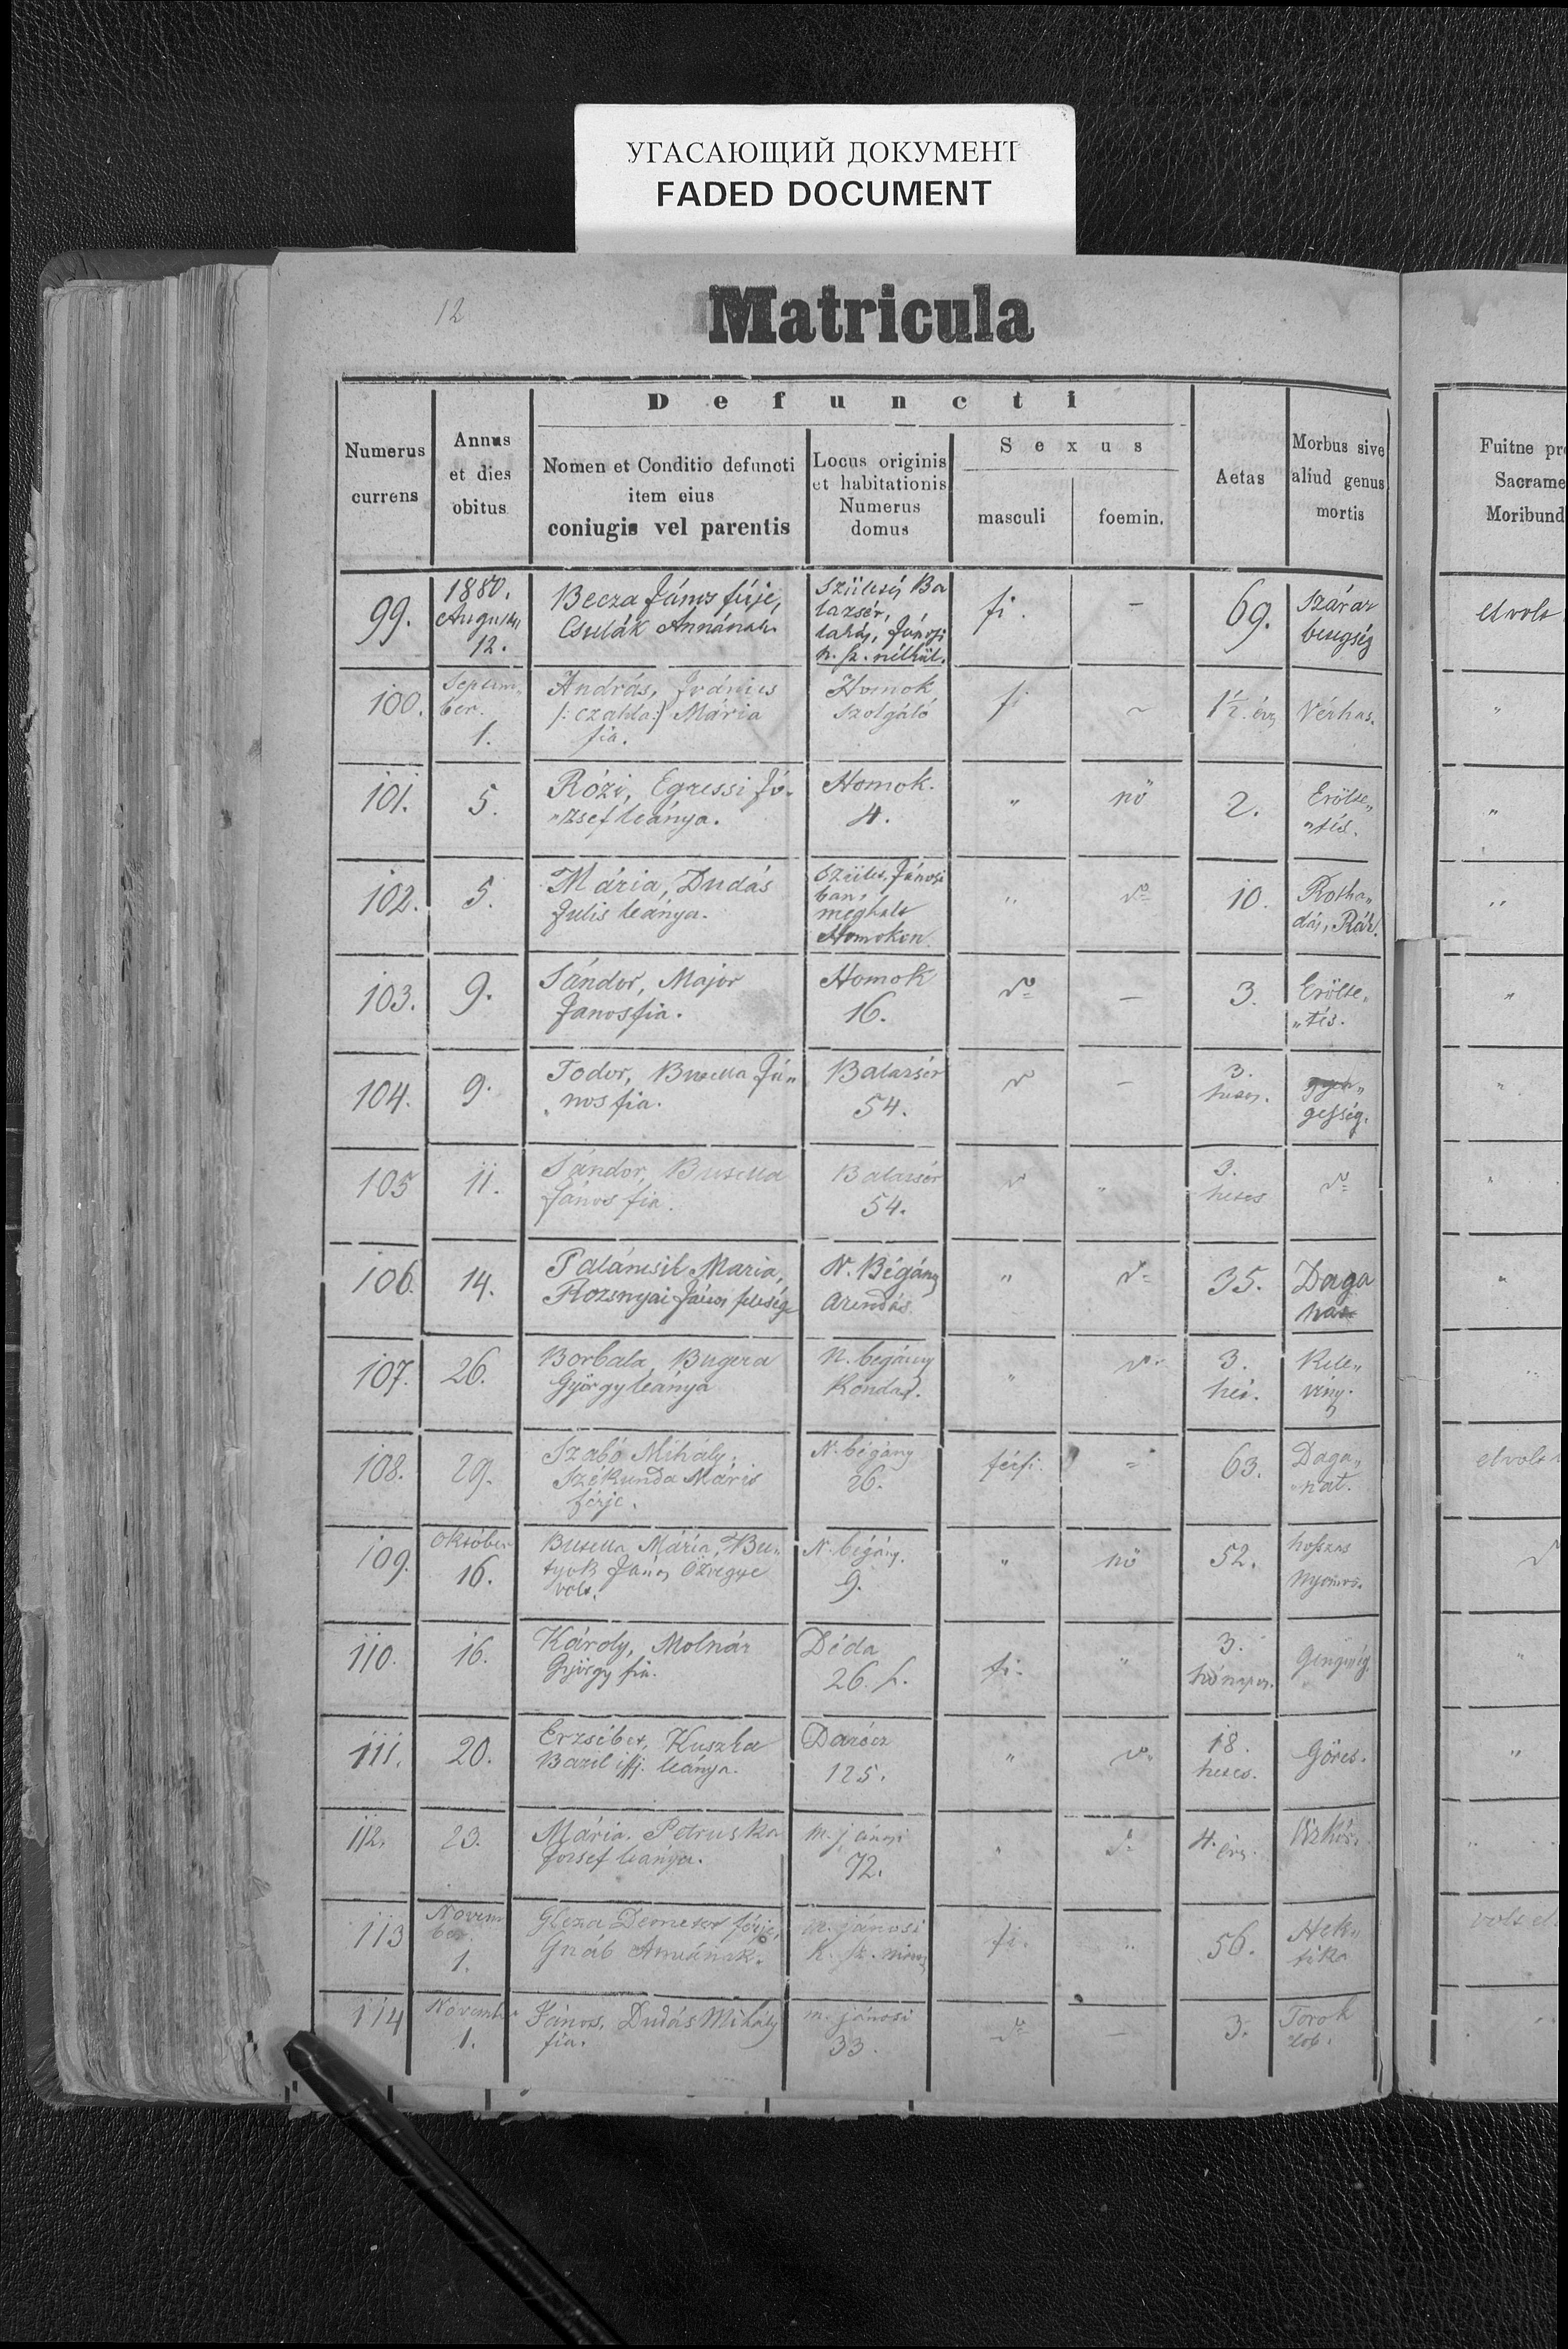 УГАСАЮЩИЙ ДОКУМЕНТ
FADED DOCUMENT
12
Matricula
Defuncti
Numerus
currens
Annus
et dies
obitus
Nomen et Conditio defuncti
item eius
coniugis vel parentis
Locus originis
et habitationis
Numerus
domus
Sexus
masculi
foemin.
Aetas
Morbus sive
aliud genus
mortis
Fuitne pro
Sacrame
Moribund
99.
1880.
Augustus
12.
Becza János férje,
Csulák Annának.
Szülésés Ba
lazsér,
lakás, Jánosi
h. sz. nélkül.
fi.
–
69.
Száraz
betegség
el volt
100.
Septem„
ber.
1.
András, Iránics
Mária
fia.
Homok
Szolgáló
fi
~
1½. éves
Vérhas.
„
101.
5.
Rózi, Egressi Jó„
„zsef leánya.
Homok.
4.
„
nö
2.
Erölte„
„tés.
„
102.
5.
Mária, Dudás
Julis leánya.
Szület. Jánosi
ban,
meghalt
Homokon.
„
do
10.
Rotha„
dás, Rák.
„
103.
9.
Sándor, Major
János fia.
Homok
16.
do
–
3.
Erölte„
„tés.
„
104.
9.
Todor, Butella Já„
„nos fia.
Balazsér
54.
do
–
3.
hetes.
gyen„
geség.
„
105
11.
Sándor, Butella
János fia.
Balazsér
54.
do
„
3.
hetes
do
„
106.
14.
Paláncsik Maria,
Rozsnyai János felesége
N. Bégány
Arendás.
„
do
35.
Daga
nat
„
107.
26.
Borbala, Bugera
György leánya
N. bégány
Kondas.
„
do
3.
hét.
Kele„
vény.
„
108.
29.
Szabó Mihály,
Szekunda Máris
férje.
N. bégány
26.
férfi.
„
63.
Daga„
„nat.
el volt
109.
Október
16.
Butella Mária, Bu„
tyok János Özvegye
volt.
N. bégány.
9.
„
nö
52.
hoszas
Nyomor.
110.
16.
Károly, Molnár
György fia.
Déda
26.
fi.
„
3.
hónapos.
Gengeség.
„
111.
20.
Erzsébet, Kuszka
Bazil ifj. leánya.
Darócz
125.
„
do
18.
hetes.
Görcs.
„
112.
23.
Mária. Petruska
József leánya.
m. jánosi
72.
„
do
4. éves.
„
113
Novem
ber.
1.
Gleza Demeter férje,
Gnáb Annának.
m. jánosi
h. sz.
fi.
„
56.
Hek„
tika
volt el
114
November
1.
János, Dudás Mihály
fia.
m. jánosi
33.
do
–
3.
Torok
lob.
„